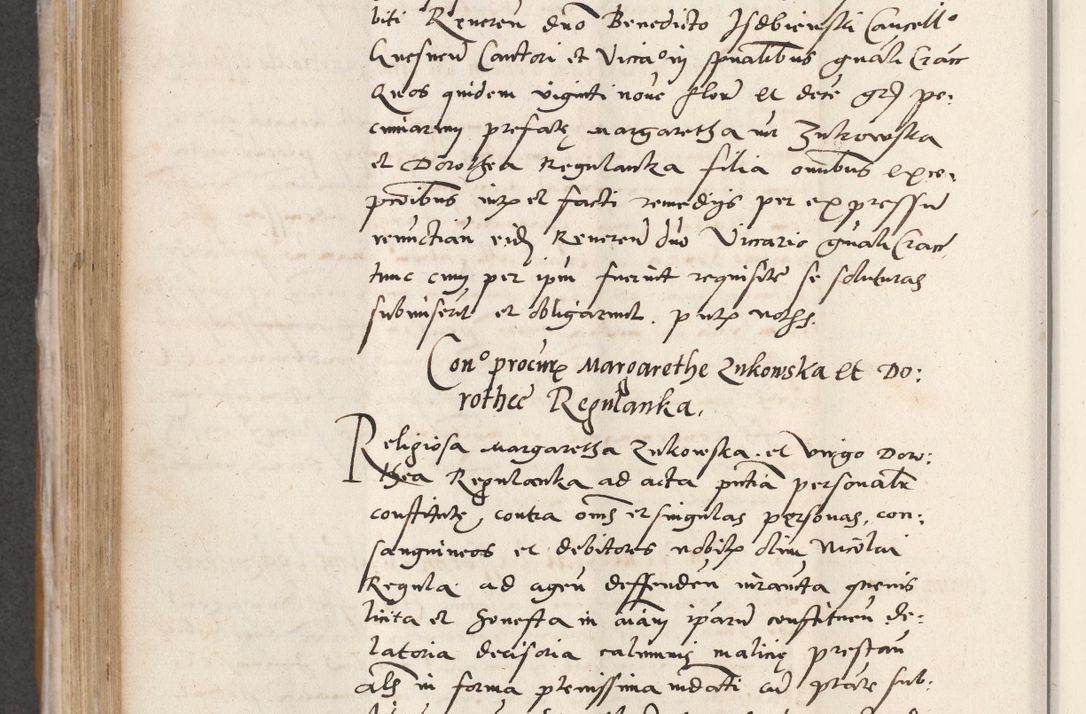 biti Reveren dno Benedicto Isdbienski Cancello
Gnesnen Cantori et Viccario in spualibus gnali Crac
Quos quidem viginti nove flor et dece gr pe:
cuniarum prefate Margaretha Zukowska
et Dorothea Regulanka filia omnibus exce:
ptionibus et facti remedys per expressu
renunctian eid Reveren dno Viccario gnali Crac
tunc cum per ipm fuerint requisite se soluturas
submiserut et obligarunt
Cono procur Margarethe Zukowska et Do:
rothee Regulanka.
Religiosa Margaretha Zukowska et virgo Doro:
thea Regulanka ad acta pntia personalr
constitute, contra oms et singulas personas, con:
sanguineos et debitores nobilis olim Nicolai
Regula ad agen deffenden quevis
licita et honesta in aiam iparu constituen de:
latoria decisoria calumnie malicie prestan
als in forma plenissima mdati cu ptate sub: